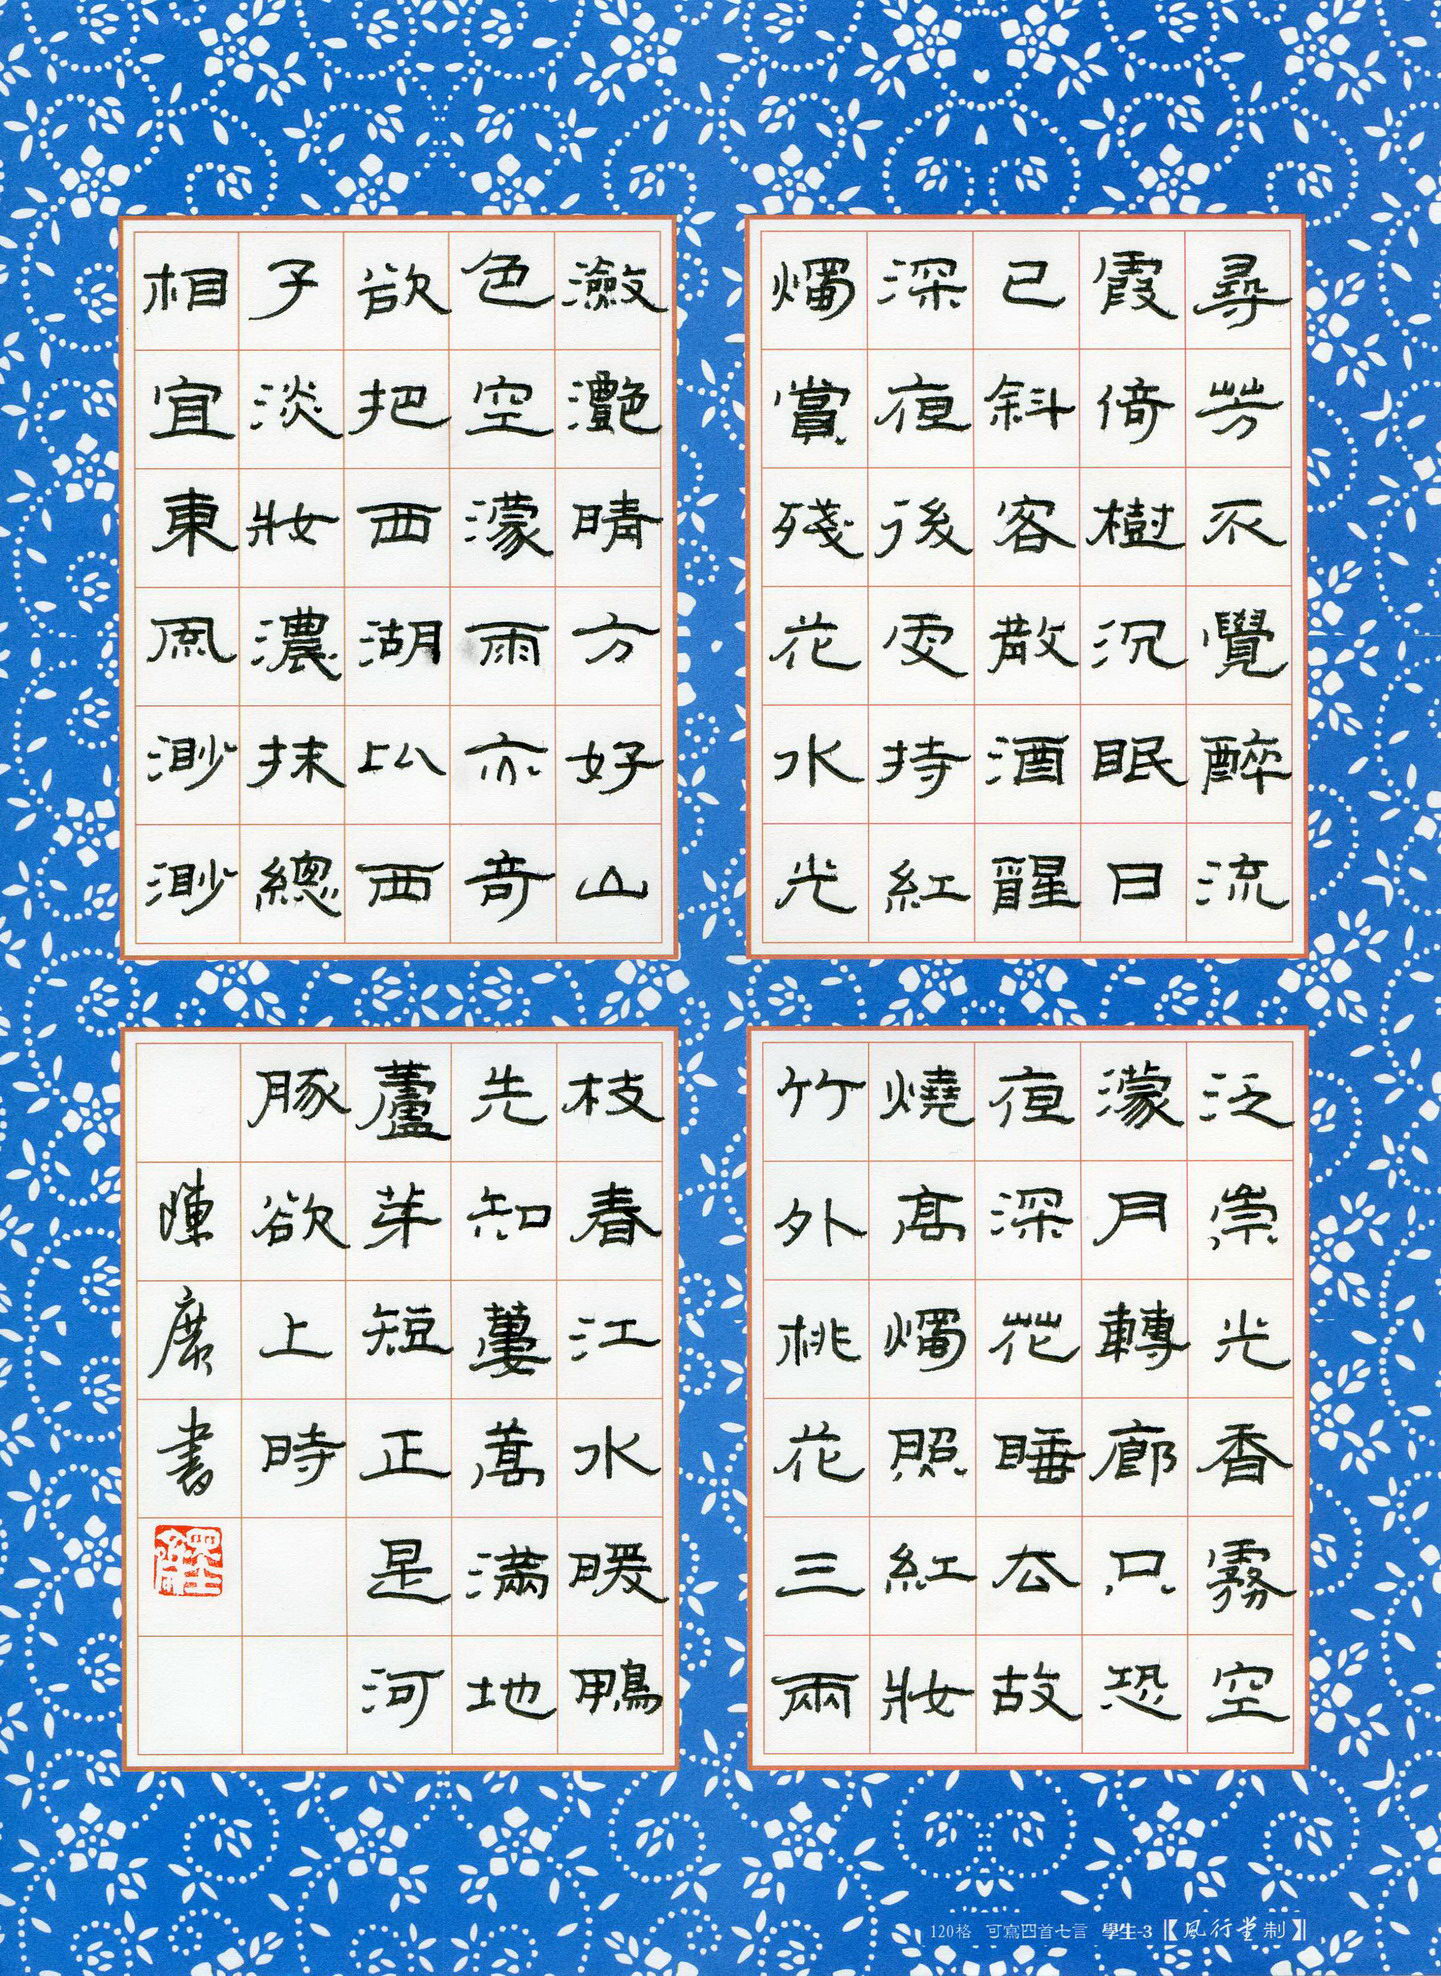 尋芳不覺醉流
霞倚樹沉眠日
已斜客散酒醒
深夜後更持紅
燭賞殘花水光
瀲灩晴方好山
色空濛雨亦奇
欲把西湖比西
子淡妝濃抹總
相宜東風渺渺
泛崇光香霧空
濛月轉廊只恐
夜深花睡去故
燒高燭照紅妝
竹外桃花三兩
枝春江水暖鴨
先知蔞蒿滿地
蘆芽短正是河
豚欲上時
陳書
120格 可寫四首七言 學生-3【風行堂制】